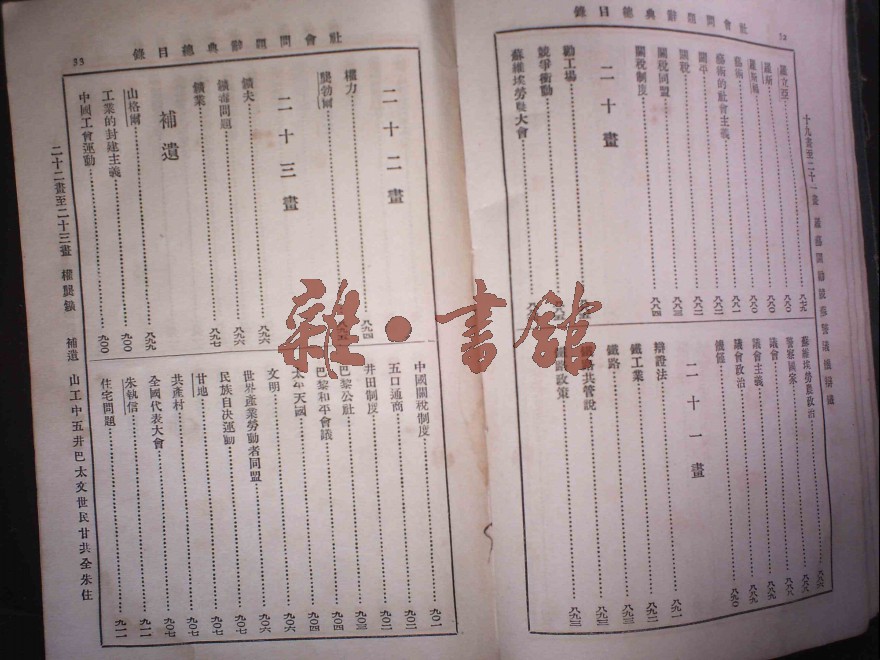 社會問題辭典總目錄
十九畫至二十一畫
藝術
藝術的社會主義……八八一
關平……八八二
關稅……八八二
關稅同盟……八八三
關稅制度……八八四
二十畫
勸工場
競爭衝動
蘇維埃勞農大會
蘇維埃勞農政治……八八六
警察國家……八八八
議會……八八九
議會主義……八八九
議會政治……八九〇
二十一畫
辯證法……八九一
鐵工業……八九二
鐵路……八九三
鐵路共管說……八九三
鐵路政策……八九三
社會問題辭典總目錄
33
二十二畫
權力……八九四
龔勃爾
二十三畫
鑛夫……八九六
鑛毒問題……八九六
鑛業……八九七
補遺
山格爾……八九九
工業的封建主義……九〇〇
中國工會運動……九〇〇
中國關稅制度……九〇一
五口通商……九〇二
井田制度……九〇二
巴黎公社……九〇四
巴黎和平會議……九〇四
太平天國……九〇六
文明……九〇六
世界產業勞動者同盟……九〇七
民族自決運動……九〇七
甘地……九〇七
共產村……九〇七
全國代表大會……九〇七
朱執信……九一一
住宅問題……九一一
二十二畫至二十三畫 權龔鑛 補遺 山工中五井巴太文世民甘共全朱住
雜·書館